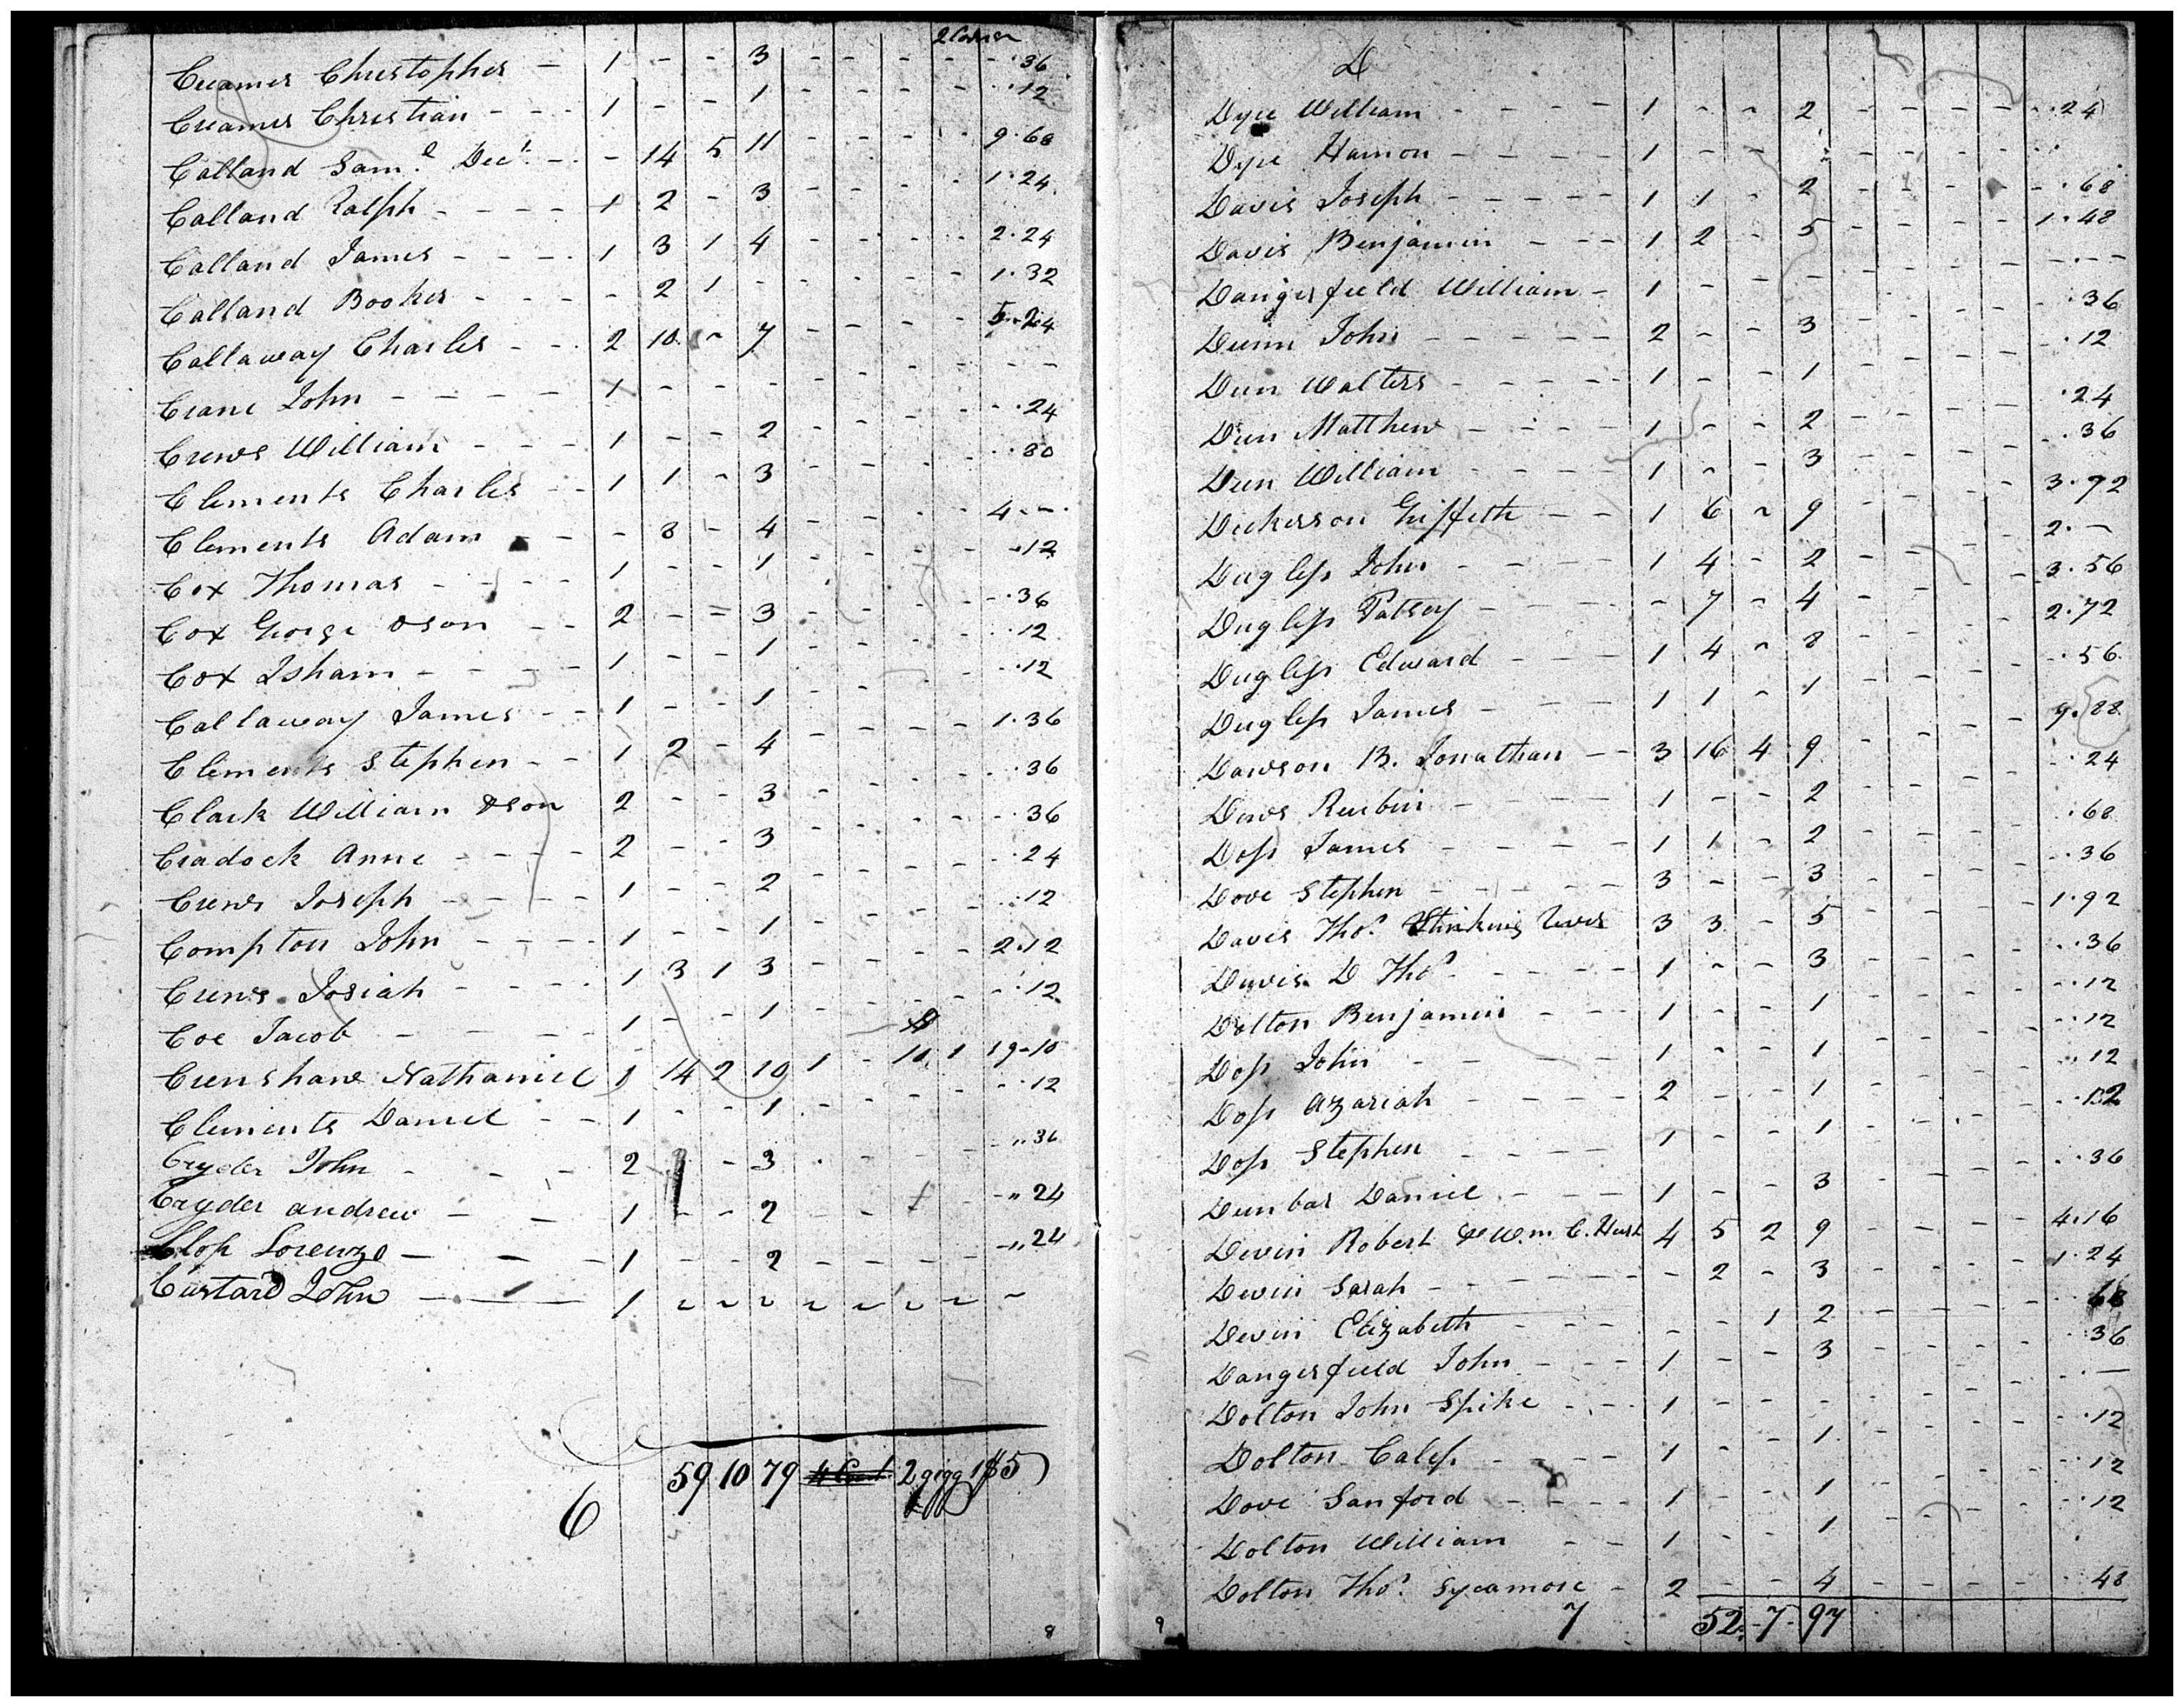 Creamer Christopher - 1 - - 3 - - - - - .36
Creamer Christian - - - 1 - - 1 - - - - - .12
Calland Sam.l Dec.d - - 14 5 11 - - - - 9.68
Calland Ralph - - - - 1 2 - 3 - - - - 1.24
Calland James - - - - 1 3 1 4 - - - - 2.24
Calland Booker - - - - - 2 1 - - - - - 1.32
Callaway Charles - - 2 10 - 7 - - - - 5.24
Crane John - - - - 1 - - - - - - - - -
Crews William - - - 1 - - 2 - - - - .24
Clements Charles - - 1 1 - 3 - - - - .80
Clements Adam - - - 8 - 4 - - - - 4. - -
Cox Thomas - - - - 1 - - 1 - - - - .12
Cox George & son - - 2 - - 3 - - - - .36
Cox Isham - - - - 1 - - 1 - - - - .12
Callaway James - - 1 - - 1 - - - - .12
Clements Stephen - - 1 2 - 4 - - - - 1.36
Clark William & son 2 - - 3 - - - - .36
Cradock Anne - - - - 2 - - 3 - - - - .36
Crews Joseph - - - - 1 - - 2 - - - - .24
Compton John - - - - 1 - - 1 - - - - .12
Crews Josiah - - - - 1 3 1 3 - - - - 2.12
Coe Jacob - - - - 1 - - 1 - - - - .12
Crenshaw Nathaniel 1 14 2 10 1 - 10 1 19.10
Clements Daniel - - 1 - - 1 - - - - .12
Cryder John - - - - 2 - - 3 - - - - .36
Cryder andrew - - 1 - - 2 - - - - .24
Clop Lorenzo - - - 1 - - 2 - - - - .24
Custard John - - - 1 - - - - - - - -
59 10 79 2 gigg 1$5
6
8
D
Dyce William - - - - 1 - - 2 - - - - .24
Dyce Hamon - - - - 1 - - - - - - -
Davis Joseph - - - - - 1 1 - 2 - - - - .68
Davis Benjamin - - - 1 2 - 5 - - - - 1.48
Dangerfield William - 1 - - - - - - - - - -
Dunn John - - - - - 2 - - 3 - - - - .36
Dun Walters - - - - - 1 - - 1 - - - - .12
Dun Matthew - - - - 1 - - 2 - - - - .24
Dun William - - - - 1 - - 3 - - - - .36
Dickerson Griffeth - - 1 6 - 9 - - - - 3.72
Dugless John - - - - 1 4 - 2 - - - - 2. -
Dugless Patsey - - - - 7 - 4 - - - - 3.56
Dugless Edward - - - 1 4 - 8 - - - - 2.72
Dugless James - - - - 1 1 - 1 - - - - .56
Dawson B. Jonathan - - 3 16 4 9 - - - - 9.88
Dews Reubin - - - - 1 - - 2 - - - - .24
Doss James - - - - 1 1 - 2 - - - - .68
Dove Stephen - - - - - 3 - - 3 - - - - .36
Davis Tho.s Stinking River 3 3 - 5 - - - - 1.92
Davis D Tho.s - - - - 1 - - 3 - - - - .36
Dolton Benjamin - - - 1 - - 1 - - - - .12
Doss John - - - - 1 - - 1 - - - - .12
Doss Azariah - - - - 2 - - 1 - - - - .12
Doss Stephen - - - - 1 - - 1 - - - - .12
Dunbar Daniel - - - - 1 - - 3 - - - - .36
Devin Robert & W.m C. Hurt 4 5 2 9 - - - - 4.16
Devin Sarah - - - - - - 2 - 3 - - - - 1.24
Devin Elizabeth - - - - - 1 2 - - - - .68
Dangerfield John - - - 1 - - 3 - - - - .36
Dolton John Spike - - 1 - - - - - - - -
Dolton Calep - - - - 1 - - 1 - - - - .12
Dove Sanford - - - - 1 - - 1 - - - - .12
Dolton William - - 1 - - 1 - - - - .12
Dolton Tho.s Sycamore - 2 - - 4 - - - - .48
7 52. 7. 97
9